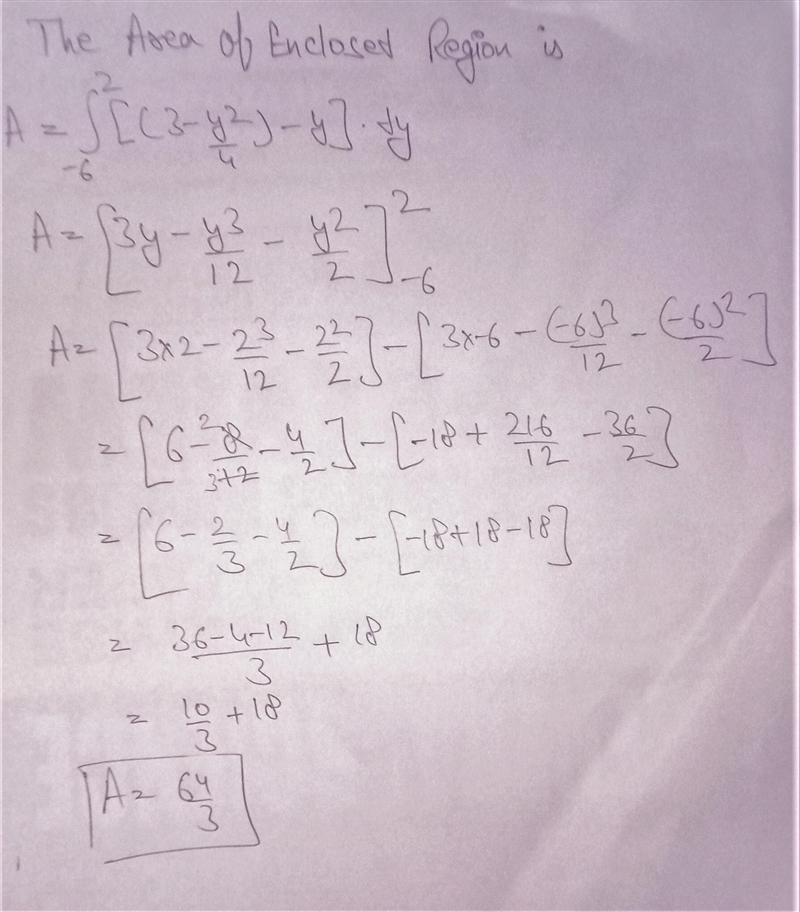 The Area of Enclosed Region is
A = ∫_{-6}^{2} [(3 - y²/4) - y] · dy
A = [3y - y³/12 - y²/2]_{-6}^{2}
A = [3×2 - 2³/12 - 2²/2] - [3×-6 - (-6)³/12 - (-6)²/2]
= [6 - 8/3+2 - 4/2] - [-18 + 216/12 - 36/2]
= [6 - 2/3 - 4/2] - [-18+18-18]
= 36-4-12/3 + 18
= 10/3 + 18
A = 64/3